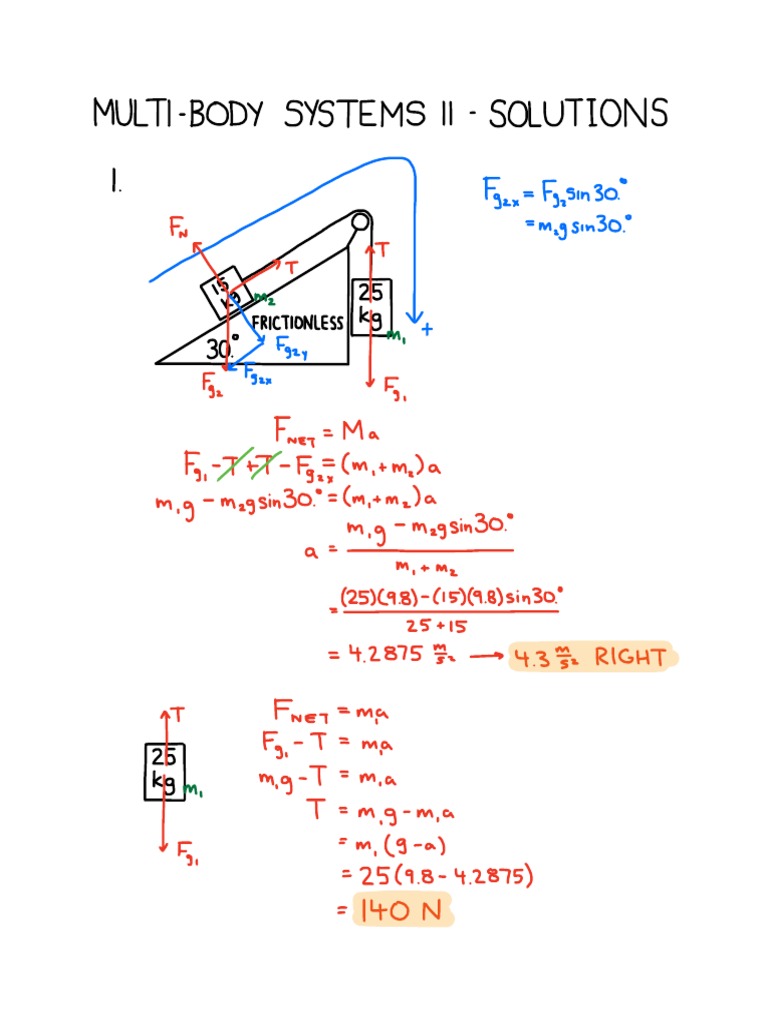 MULTI-BODY SYSTEMS II - SOLUTIONS
1.
F_g2x = F_g2 sin30.°
= m_2 g sin30.°
F_N
T
T
15 kg
m_2
25 kg
m_1
FRICTIONLESS
30.°
F_g2y
F_g2x
F_g2
F_g1
+
F_NET = Ma
F_g1 - T + T - F_g2x = (m_1 + m_2)a
m_1 g - m_2 g sin30.° = (m_1 + m_2)a
a = (m_1 g - m_2 g sin30.°) / (m_1 + m_2)
= ((25)(9.8) - (15)(9.8) sin30.°) / (25 + 15)
= 4.2875 m/s² → 4.3 m/s² RIGHT
T
25 kg
m_1
F_g1
F_NET = m_1 a
F_g1 - T = m_1 a
m_1 g - T = m_1 a
T = m_1 g - m_1 a
= m_1 (g - a)
= 25(9.8 - 4.2875)
= 140 N